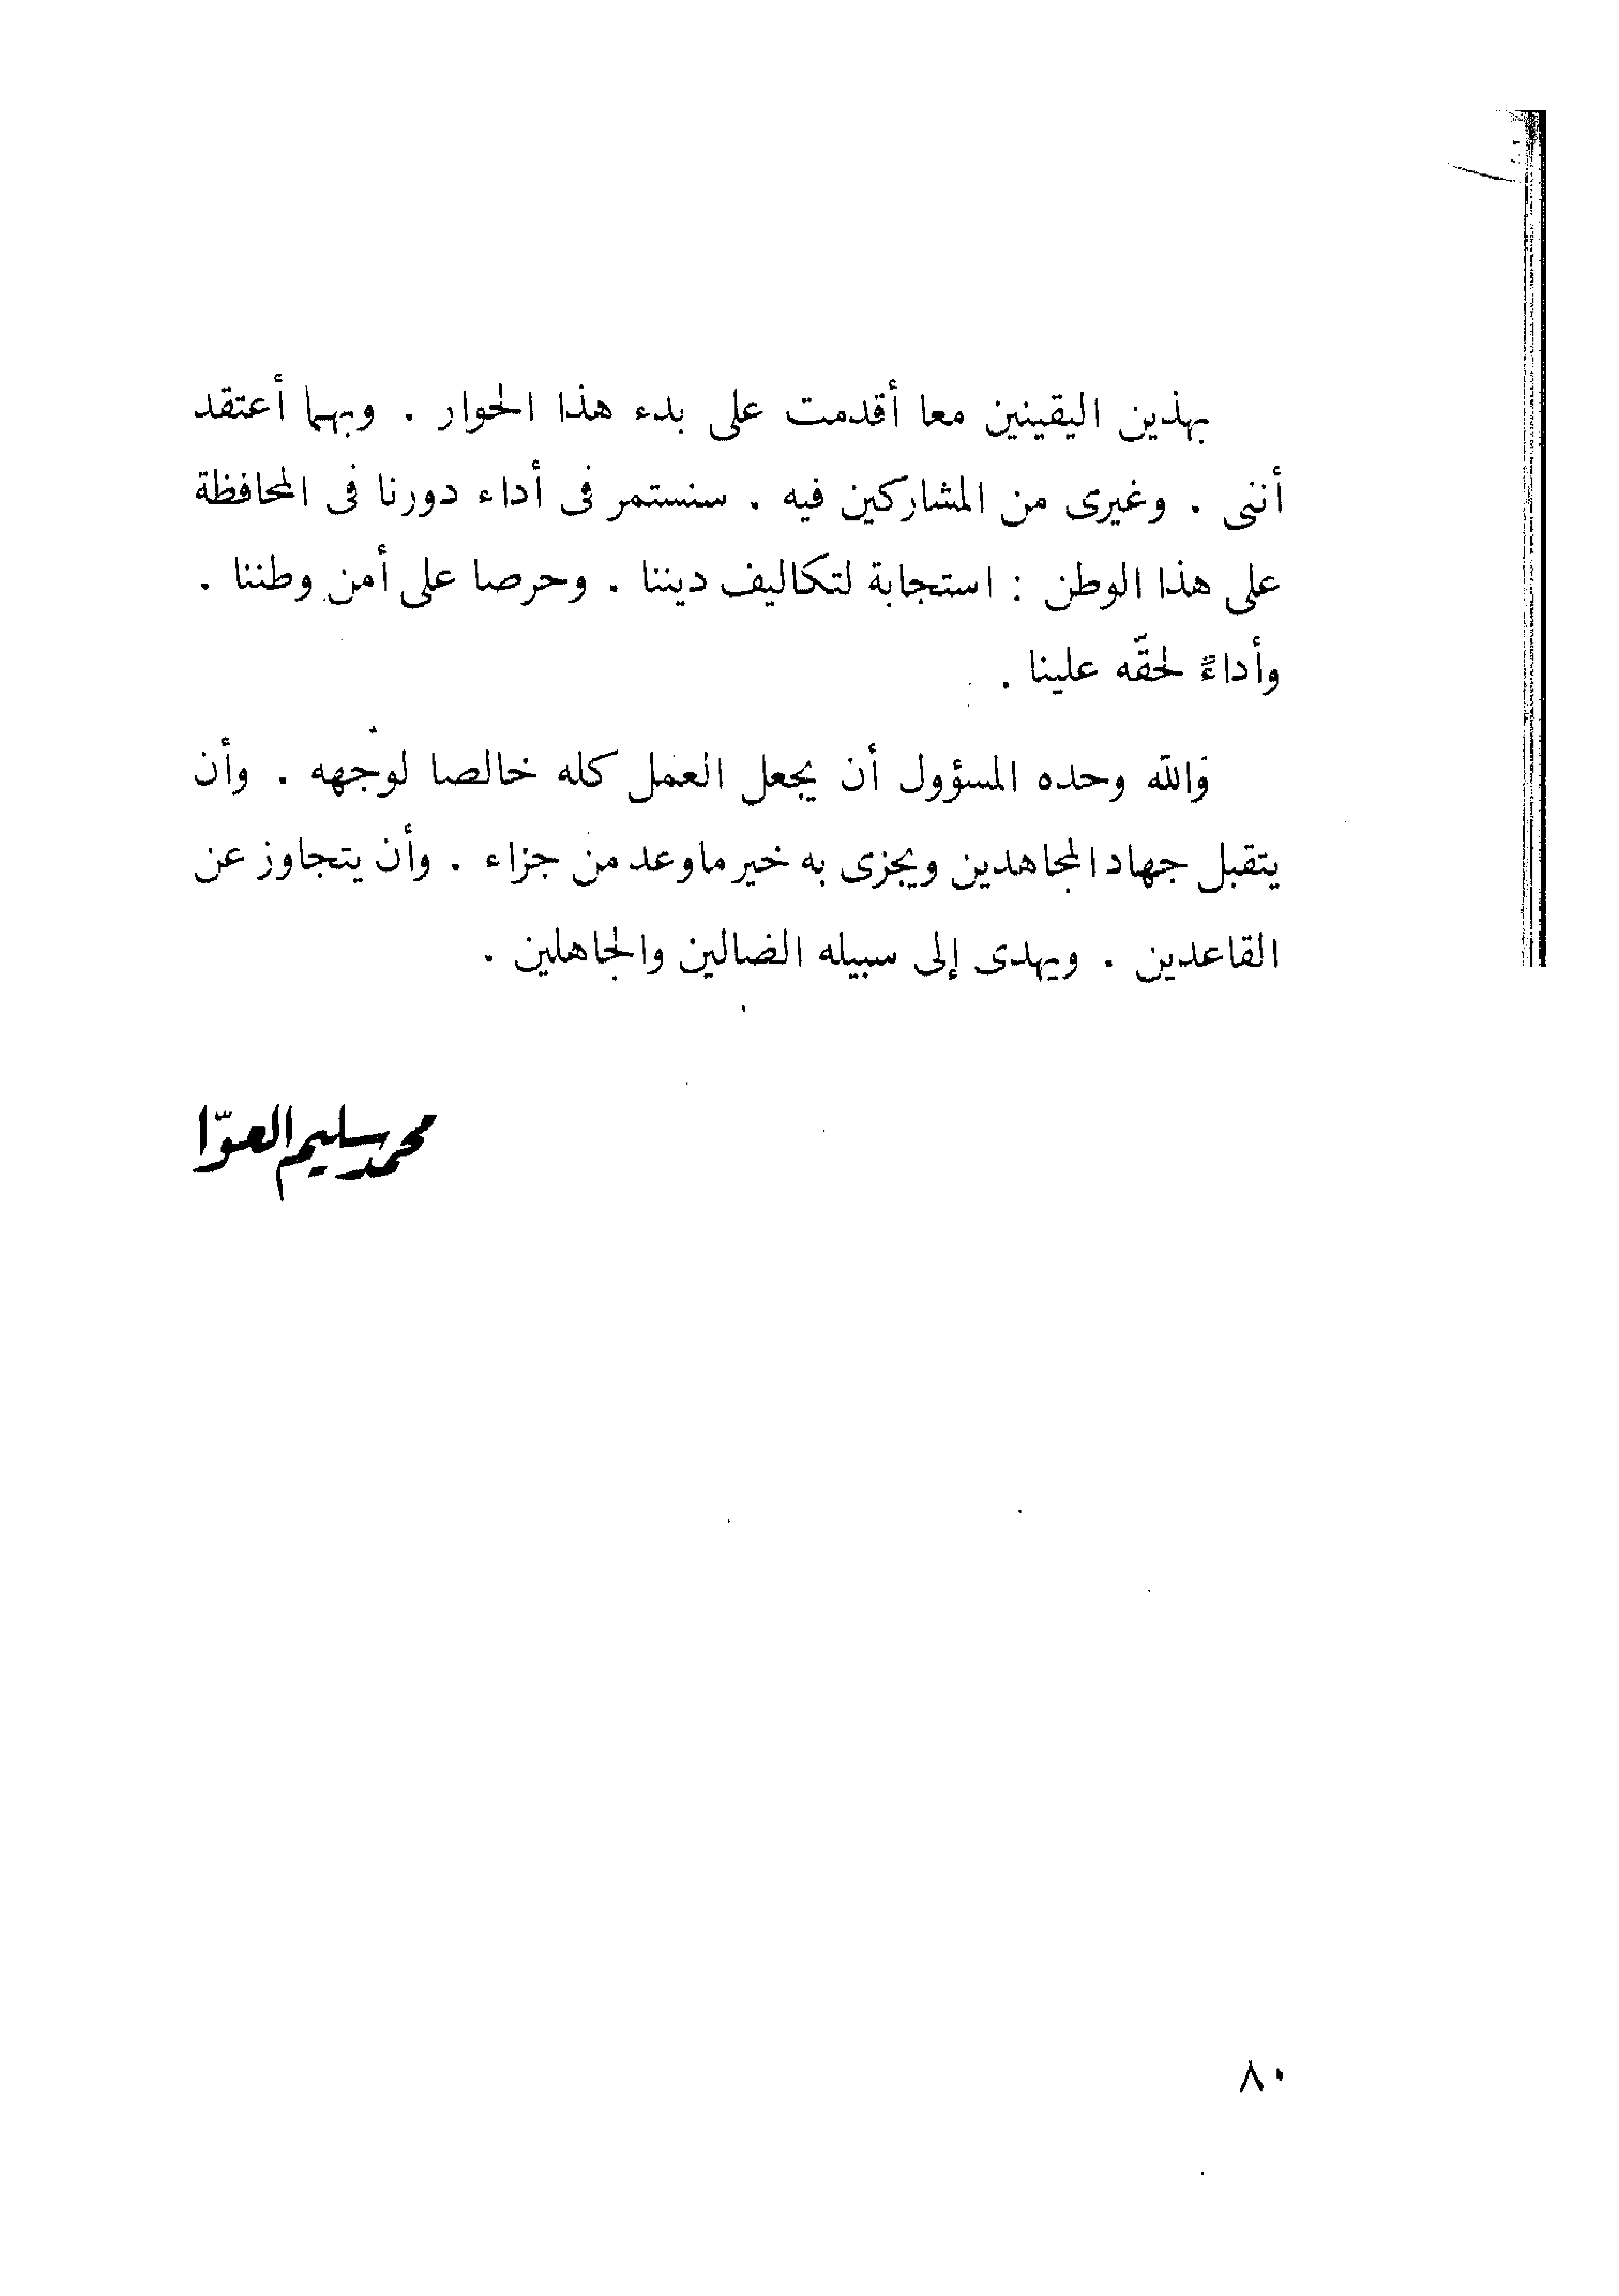 بهذين اليقينين معا أقدمت على بدء هذا الحوار . وبهما أعتقد
أننى . وغيرى من المشاركين فيه . سنستمر فى أداء دورنا فى المحافظة
على هذا الوطن : استجابة لتكاليف ديننا . وحرصا على أمن وطننا .
وأداءً لحقّه علينا .
والله وحده المسؤول أن يجعل العمل كله خالصا لوجهه . وأن
يتقبل جهاد المجاهدين ويجزى به خير ماوعد من جزاء . وأن يتجاوز عن
القاعدين . ويهدى إلى سبيله الضالين والجاهلين .
محمد سليم العوّا
٨٠